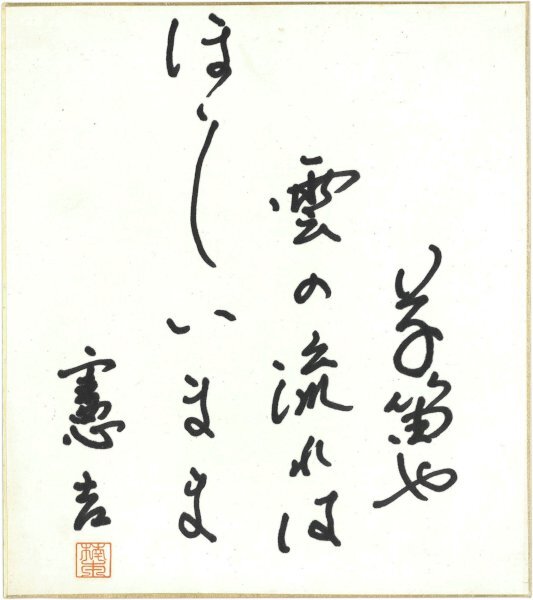 草笛や
雲の流れは
ほしいまま
憲吉
楠本